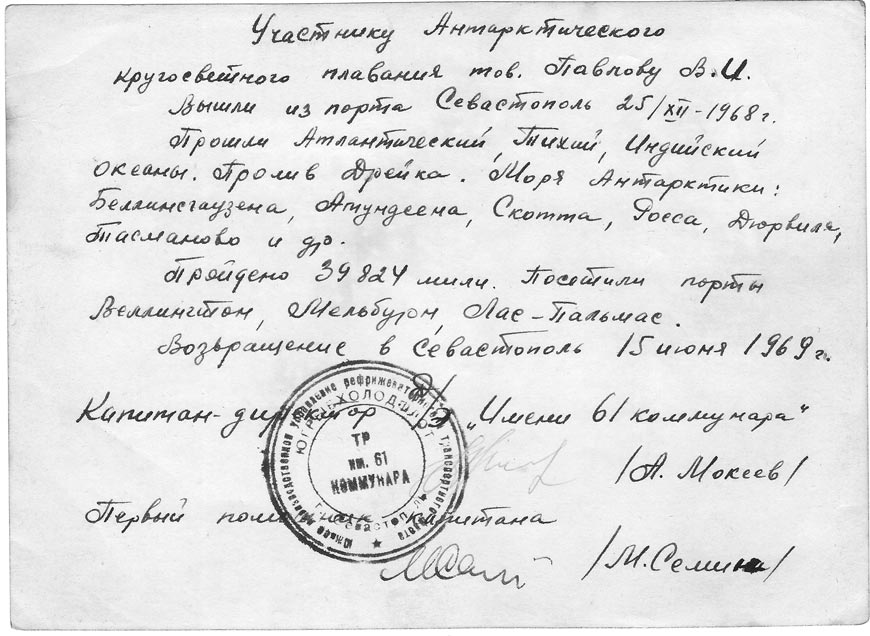 Участнику Антарктического
кругосветного плавания тов. Павлову В.И.
Вышли из порта Севастополь 25/XII-1968 г.
Прошли Атлантический, Тихий, Индийский
океаны. Пролив Дрейка. Моря Антарктики:
Беллинсгаузена, Амундсена, Скотта, Росса, Дюрвиля,
Тасманово и др.
Пройдено 39824 мили. Посетили порты
Веллингтон, Мельбурн, Лас-Пальмас.
Возвращение в Севастополь 15 июня 1969 г.
Капитан-директор „Имени 61 коммунара"
/А. Мокеев/
Первый помощник капитана
/М. Семин/
Южное производственное управление рефрижераторного транспортного флота
ЮГРЫБХОЛОДФЛОТ
ТР
им. 61
КОММУНАРА
г. Севастополь